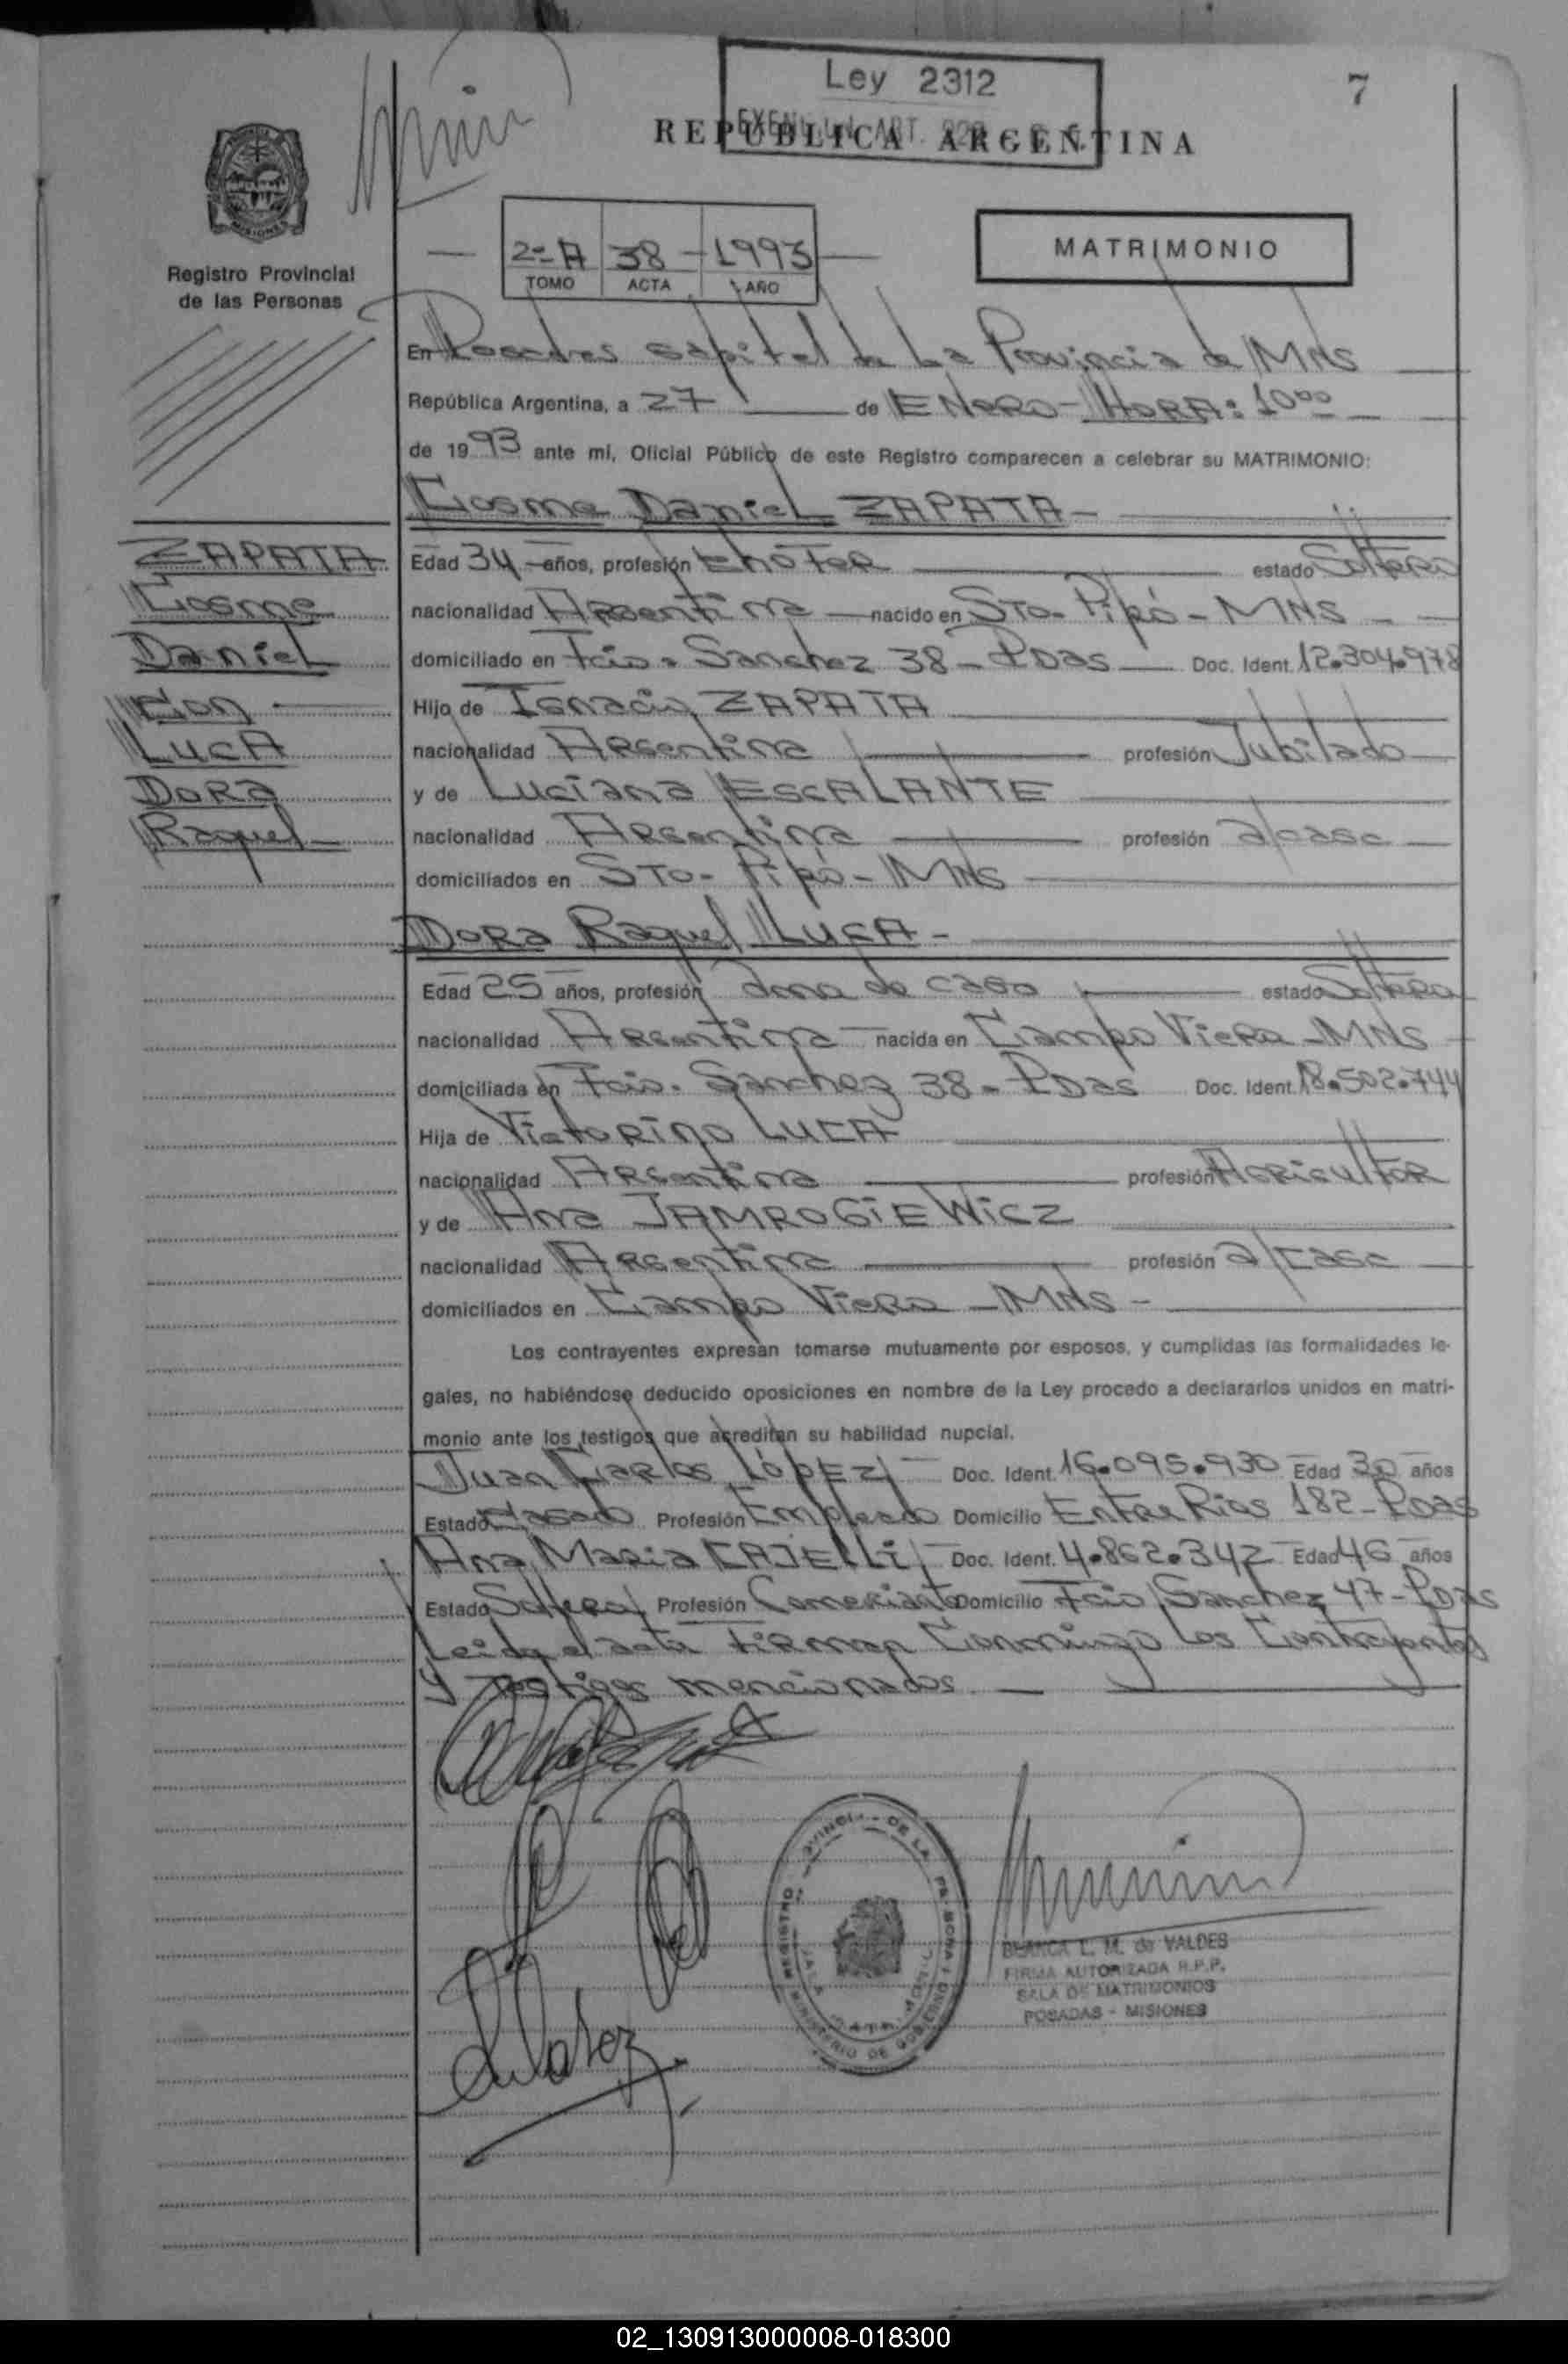 Ley 2312
7
REPUBLICA ARGENTINA
Registro Provincial
de las Personas
2º A 38 - 1993
TOMO ACTA AÑO
MATRIMONIO
En Posadas capital de La Provincia de MNS
República Argentina, a 27 de ENERO - HORA: 10⁰⁰
de 1993 ante mi, Oficial Público de este Registro comparecen a celebrar su MATRIMONIO:
Cosme Daniel ZAPATA -
ZAPATA
Cosme
Daniel
Con
LUCA
Dora
Raquel
Edad 34 años, profesión Chofer estado Soltero
nacionalidad Argentina nacido en Sto. Pipó - MNS
domiciliado en Fcio. Sanchez 38 - Pdas Doc. Ident. 12.304.978
Hijo de Ignacio ZAPATA
nacionalidad Argentina profesión Jubilado
y de Luciana ESCALANTE
nacionalidad Argentina profesión a/casa
domiciliados en Sto. Pipó - MNS
Dora Raquel LUCA -
Edad 25 años, profesión Ama de casa estado Soltera
nacionalidad Argentina nacida en Campo Viera - MNS
domiciliada en Fcio. Sanchez 38 - Pdas Doc. Ident. 18.502.744
Hija de Victorino LUCA
nacionalidad Argentina profesión Agricultor
y de Ana JAMROGIEWICZ
nacionalidad Argentina profesión a/casa
domiciliados en Campo Viera - MNS -
Los contrayentes expresan tomarse mutuamente por esposos, y cumplidas las formalidades le-
gales, no habiéndose deducido oposiciones en nombre de la Ley procedo a declararlos unidos en matri-
monio ante los testigos que acreditan su habilidad nupcial.
Juan Carlos LÓPEZ Doc. Ident. 16.095.930 Edad 30 años
Estado Casado Profesión Empleado Domicilio Entre Rios 182 - Pdas
Ana Maria CAJELLI Doc. Ident. 4.862.342 Edad 46 años
Estado Soltera Profesión Comerciante Domicilio Fcio Sanchez 47 - Pdas
Leida el acta firman Conmingo Los Contrayentes
y testigos mencionados
BLANCA L. M. de VALDES
FIRMA AUTORIZADA R.P.P.
SALA DE MATRIMONIOS
POSADAS - MISIONES
02_130913000008-018300